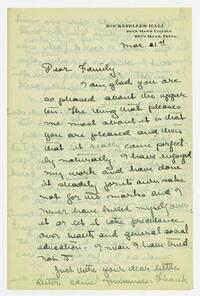 ROCKEFELLER HALL
BRYN MAWR COLLEGE
BRYN MAWR, PENNA.
Mar. 21st
Dear Family,
I am glad you are
so pleased about the upper
ten. The thing that pleases
me most about it is that
you are pleased and then
that it really came perfect
ly naturally. I have enjoyed
my work and have done
it steadily for its own sake
not for my marks and I
never have over it
or set it into precedence
over health and general social
education. I mean I have tried
not to.
Just here your dear little
letter came